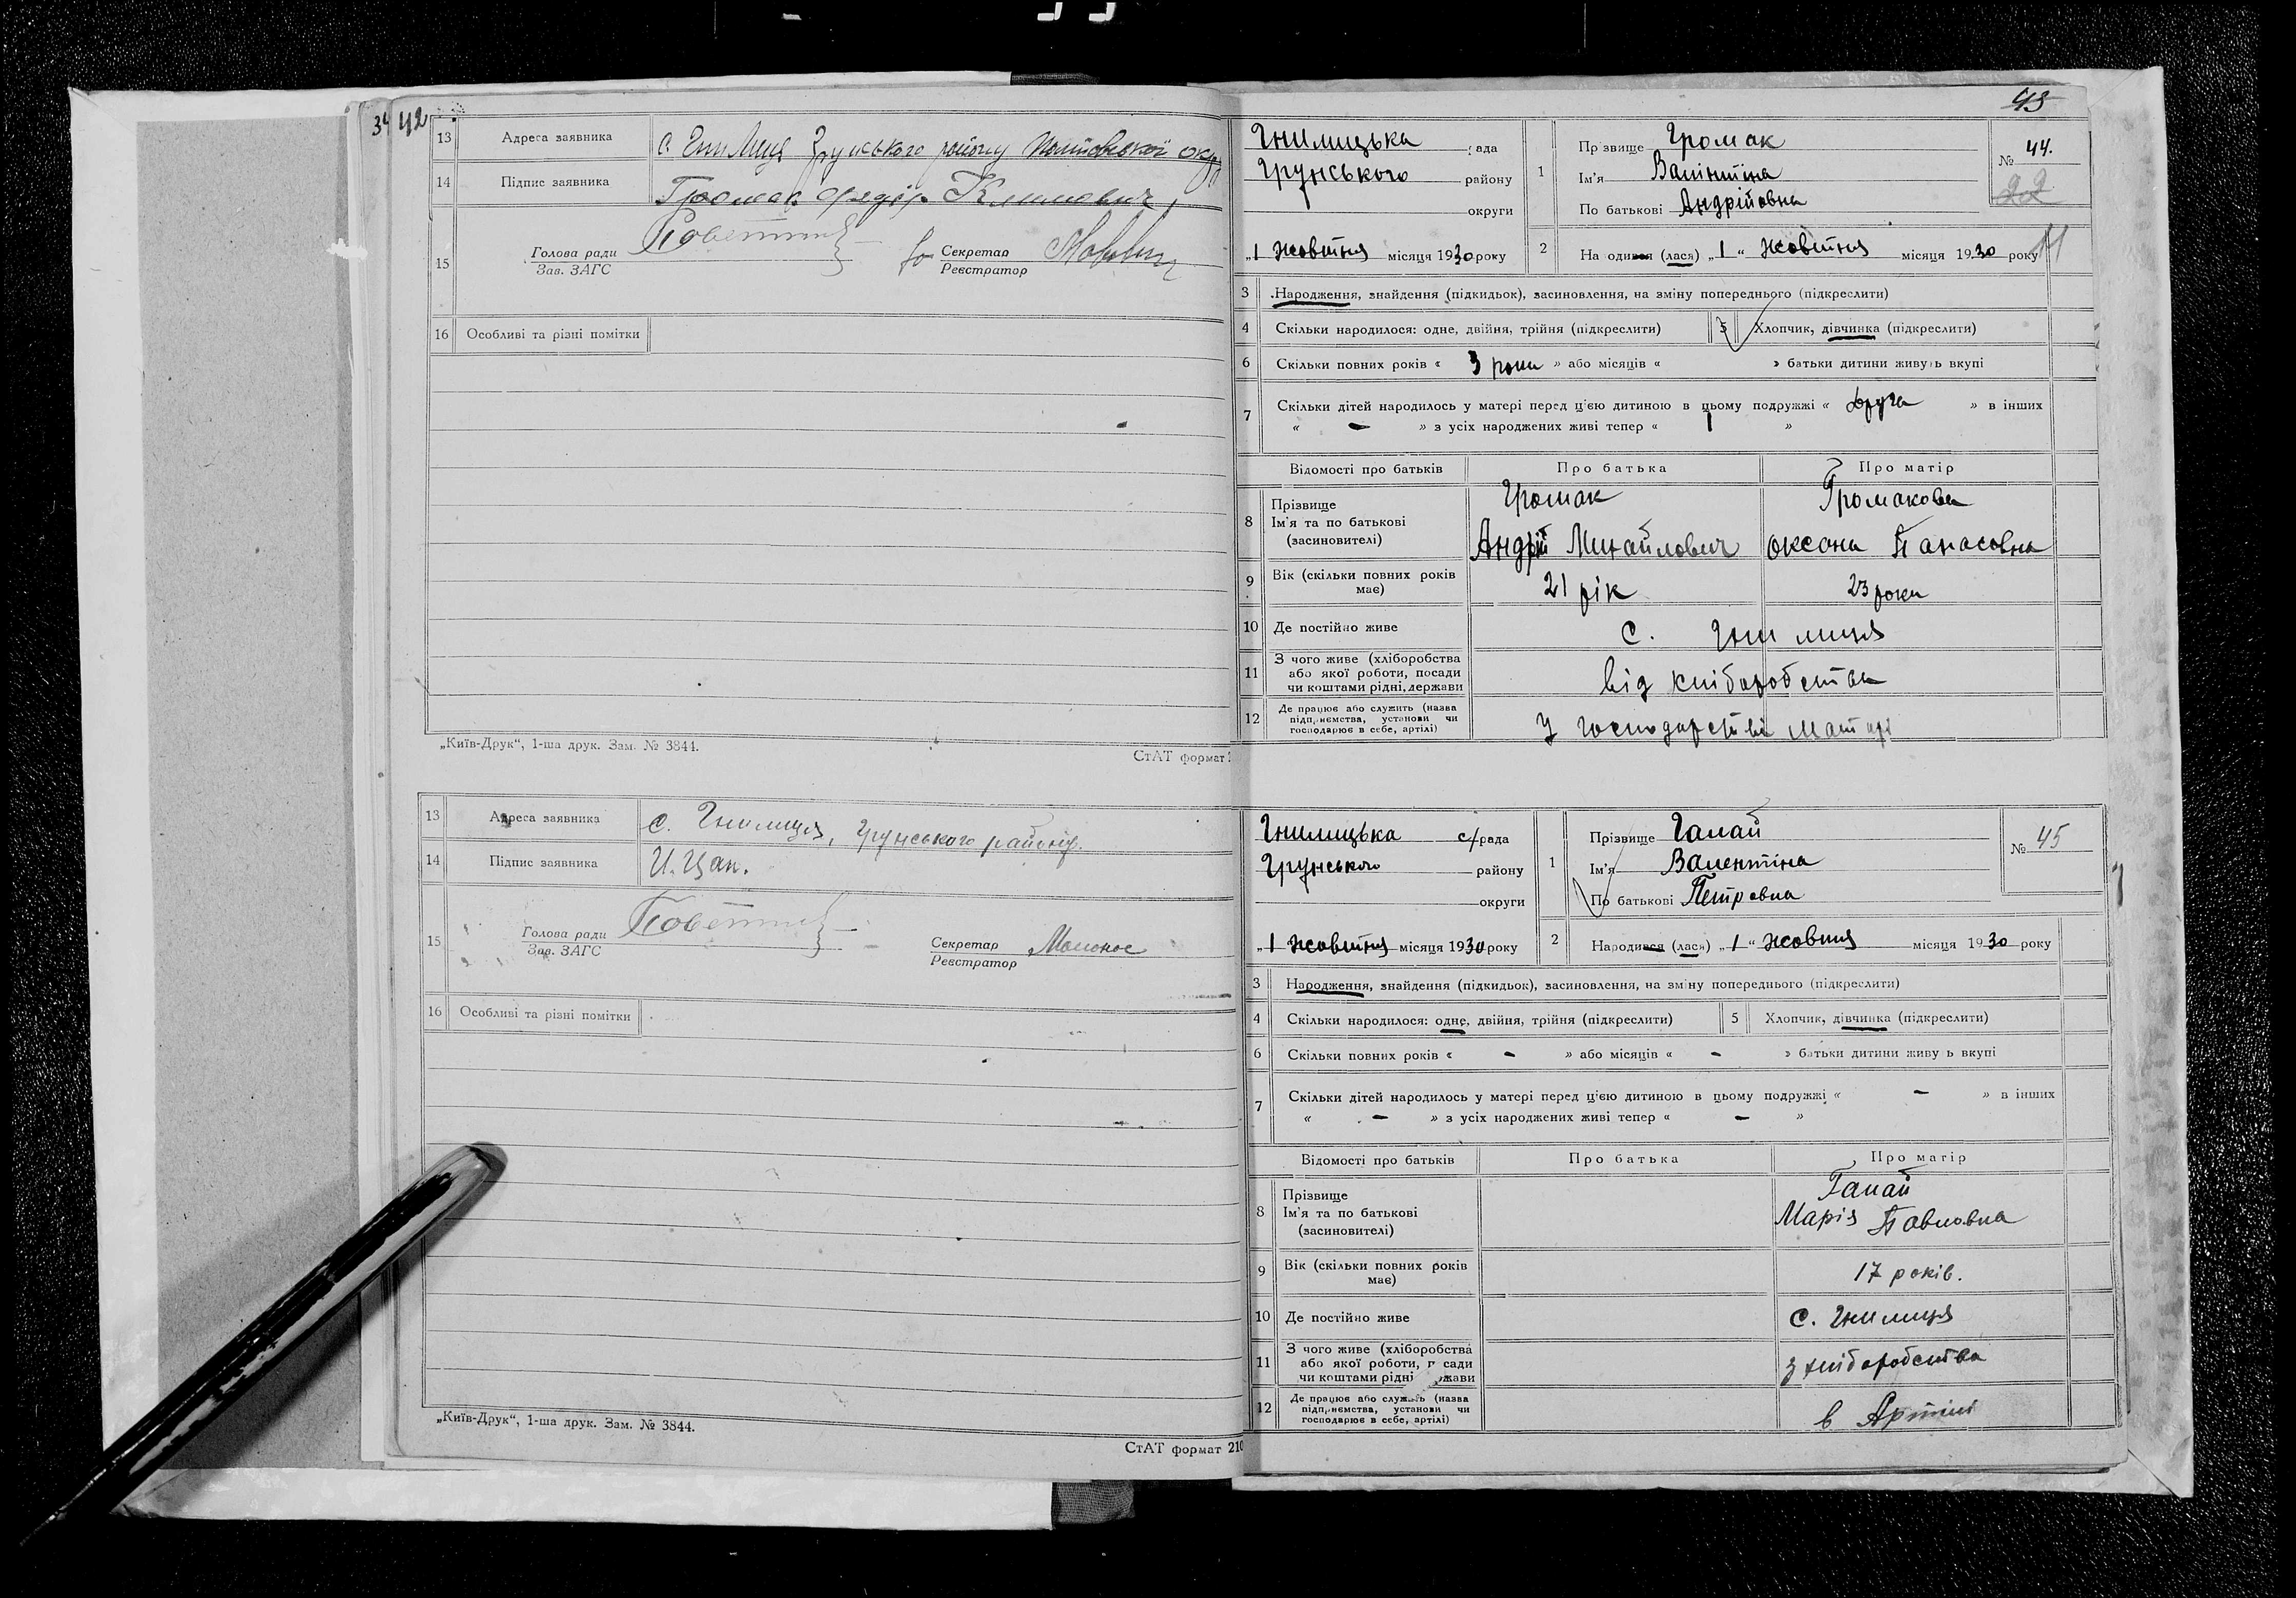 34 42
13 Адреса заявника с. Гнилиця Грунського району Полтавської окр
14 Підпис заявника Громак Федір Климович
15 Голова ради Зав. ЗАГС Секретар Реєстратор
16 Особливі та різні помітки
„Київ-Друк“, 1-ша друк. Зам. № 3844.
СтАТ формат
13 Адреса заявника с. Гнилиця, Грунського району.
14 Підпис заявника И. Цап.
15 Голова ради Зав. ЗАГС Секретар Реєстратор
16 Особливі та різні помітки
„Київ-Друк“, 1-ша друк. Зам. № 3844.
СтАТ формат 210
43
Гнилицька рада
Грунського району
округи
„1 жовтня місяця 1930 року
1 Прізвище Громак
Ім'я Валінтіна
По батькові Андрійовна
№ 44.
22
2 На одився (лася) „1“ жовтня місяця 1930 року
3 Народження, знайдення (підкидьок), засиновлення, на зміну попереднього (підкреслити)
4 Скільки народилося: одне, двійня, трійня (підкреслити) 5 Хлопчик, дівчинка (підкреслити)
6 Скільки повних років « 3 роки » або місяців « » батьки дитини живуть вкупі
7 Скільки дітей народилось у матері перед цією дитиною в цьому подружжі « друга » в інших
« - » з усіх народжених живі тепер « 1 »
Відомості про батьків Про батька Про матір
8 Прізвище Громак Громакова
Ім'я та по батькові
(засновителі) Андрій Михайлович Оксана Панасовна
9 Вік (скільки повних років має) 21 рік 23 роки
10 Де постійно живе с. Гнилиця
11 З чого живе (хліборобства
або якої роботи, посади
чи коштами рідні, держави від хліборобства
12 Де працює або служить (назва
підприємства, установи чи
господарює в себе, артілі) У господарстві матері
Гнилицька с/рада
Грунського району
округи
„1 жовтня місяця 1930 року
1 Прізвище Галай
Ім'я Валентіна
По батькові Петровна
№ 45
2 Народився (лася) „1“ жовтня місяця 1930 року
3 Народження, знайдення (підкидьок), засиновлення, на зміну попереднього (підкреслити)
4 Скільки народилося: одне, двійня, трійня (підкреслити) 5 Хлопчик, дівчинка (підкреслити)
6 Скільки повних років « - » або місяців « - » батьки дитини живу ь вкупі
7 Скільки дітей народилось у матері перед цією дитиною в цьому подружжі « - » в інших
« - » з усіх народжених живі тепер « - »
Відомості про батьків Про батька Про матір
8 Прізвище Галай
Ім'я та по батькові Марія Павловна
(засиновителі)
9 Вік (скільки повних років має) 17 років.
10 Де постійно живе с. Гнилиця
11 З чого живе (хліборобства
або якої роботи, п сади
чи коштами рідні жави з хліборобства
12 Де працює або служить (назва
підприємства, установи чи
господарює в себе, артілі) в Артілі